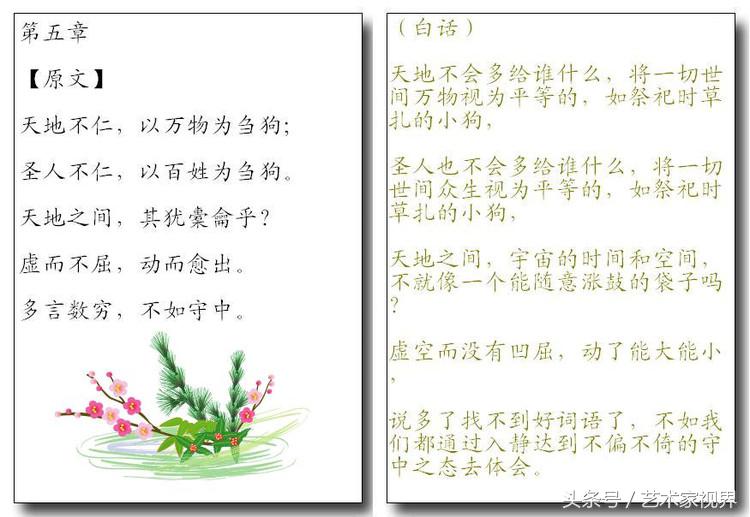 第五章
【原文】
天地不仁，以万物为刍狗；
圣人不仁，以百姓为刍狗。
天地之间，其犹橐龠乎？
虚而不屈，动而愈出。
多言数穷，不如守中。
（白话）
天地不会多给谁什么，将一切世
间万物视为平等的，如祭祀时草
扎的小狗，
圣人也不会多给谁什么，将一切
世间众生视为平等的，如祭祀时
草扎的小狗，
天地之间，宇宙的时间和空间，
不就像一个能随意涨鼓的袋子吗
？
虚空而没有凹屈，动了能大能小
，
说多了找不到好词语了，不如我
们都通过入静达到不偏不倚的守
中之态去体会。
头条号／艺术家视界